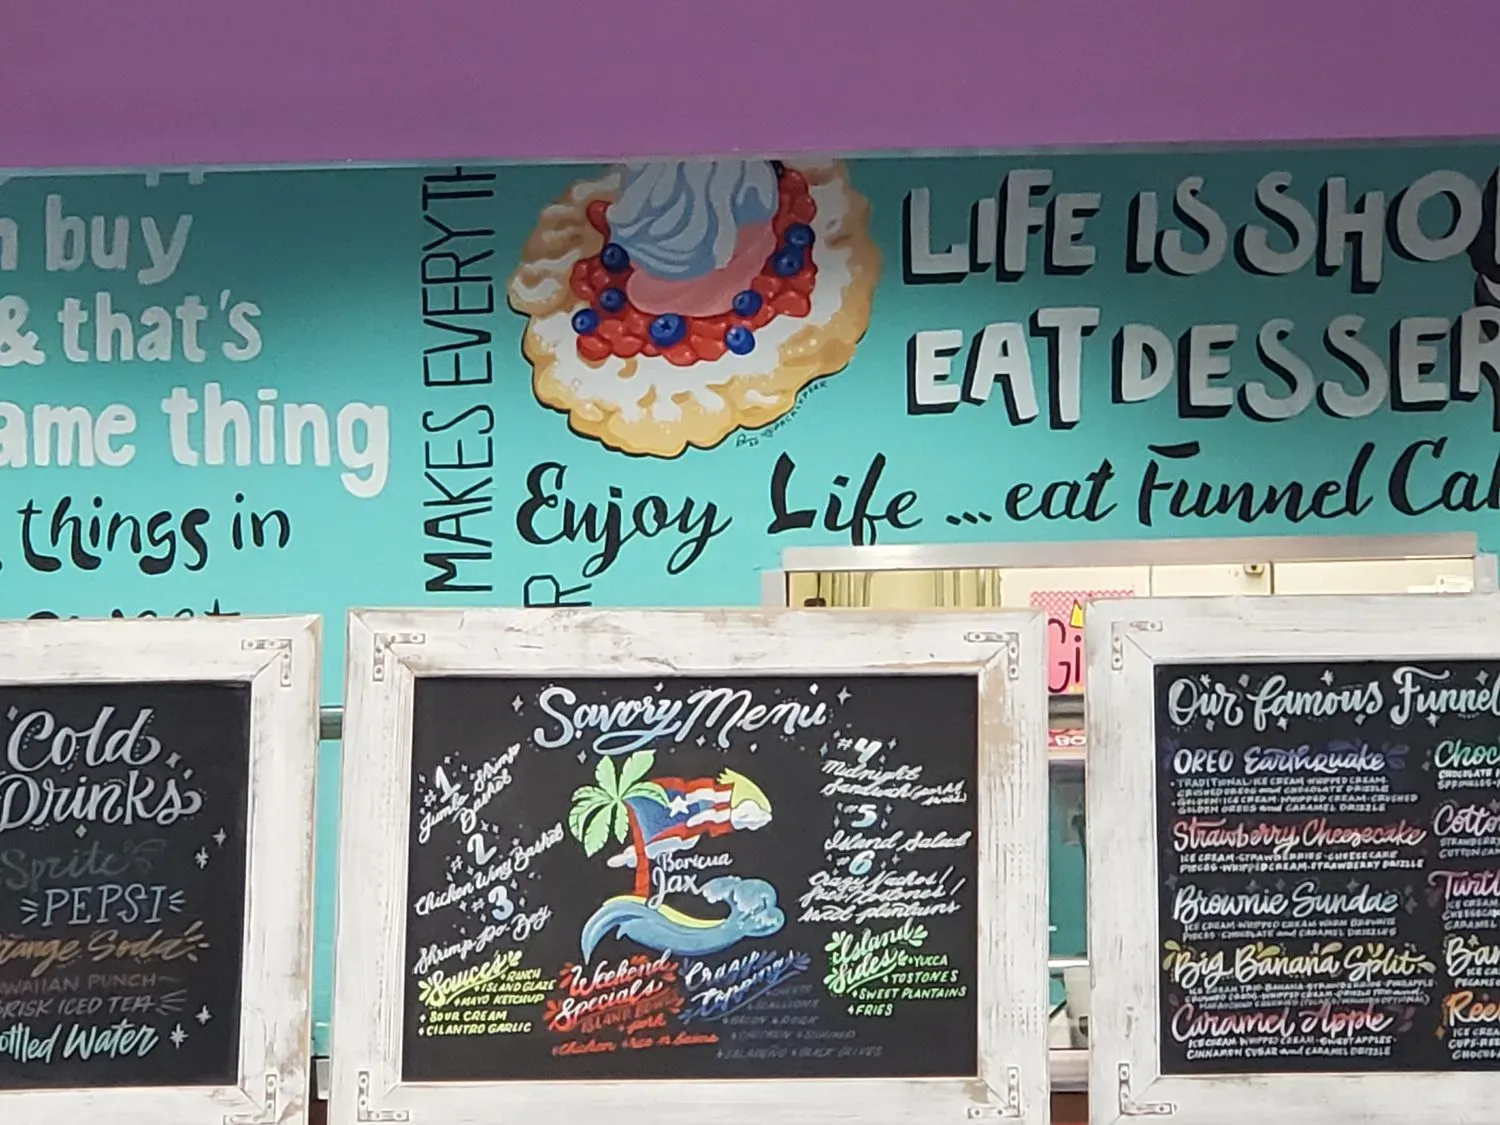 buy
& that's
ame thing
things in
MAKES EVERYTH
LIFE IS SHO
EAT DESSER
Enjoy Life ...eat Funnel Cak
R
Gi
BO
Cold
Drinks
Sprite
PEPSI
range Soda
WAIIAN PUNCH
BRISK ICED TEA
ottled Water
Savory Menu
#1
Jumbo Shrimp
Basket
#2
Chicken Wing Basket
#3
Shrimp Po Boy
Sauces
RANCH
ISLAND GLAZE
MAYO KETCHUP
SOUR CREAM
CILANTRO GARLIC
Boricua
Jax
Weekend
Specials
ISLAND BOWLS
pork
chicken rice n beans
Crazy
Toppings
SCALLIONS
BACON PORK
CHICKEN SHRIMP
JALAPEÑO BLACK OLIVES
#4
Midnight
Sandwich (pork
#5
Island Salad
#6
Crazy Nachos!
fries/tostones/
sweet plantains
Island
Sides
YUCCA
TOSTONES
SWEET PLANTAINS
FRIES
Our famous Funnel
OREO Earthquake
TRADITIONAL ICE CREAM WHIPPED CREAM
CRUSHED OREO and CHOCOLATE DRIZZLE
GOLDEN ICE CREAM WHIPPED CREAM CRUSHED
GOLDEN OREO and CARAMEL DRIZZLE
Strawberry Cheesecake
ICE CREAM STRAWBERRIES CHEESECAKE
PIECES WHIPPED CREAM STRAWBERRY DRIZZLE
Brownie Sundae
ICE CREAM WHIPPED CREAM WARM BROWNIE
PIECES CHOCOLATE and CARAMEL DRIZZLES
Big Banana Split
ICE CREAM TRIO BANANA STRAWBERRIES PINEAPPLE
Caramel Apple
ICE CREAM WHIPPED CREAM SWEET APPLES
CINNAMON SUGAR and CARAMEL DRIZZLE
Choc
CHOCOLATE
SPRINKLES
Cotto
STRAWBERRY
COTTON CAN
Turtl
ICE CREAM
Ban
ICE CREAM
Rees
ICE CREA
CUPS REE
CHOCOL